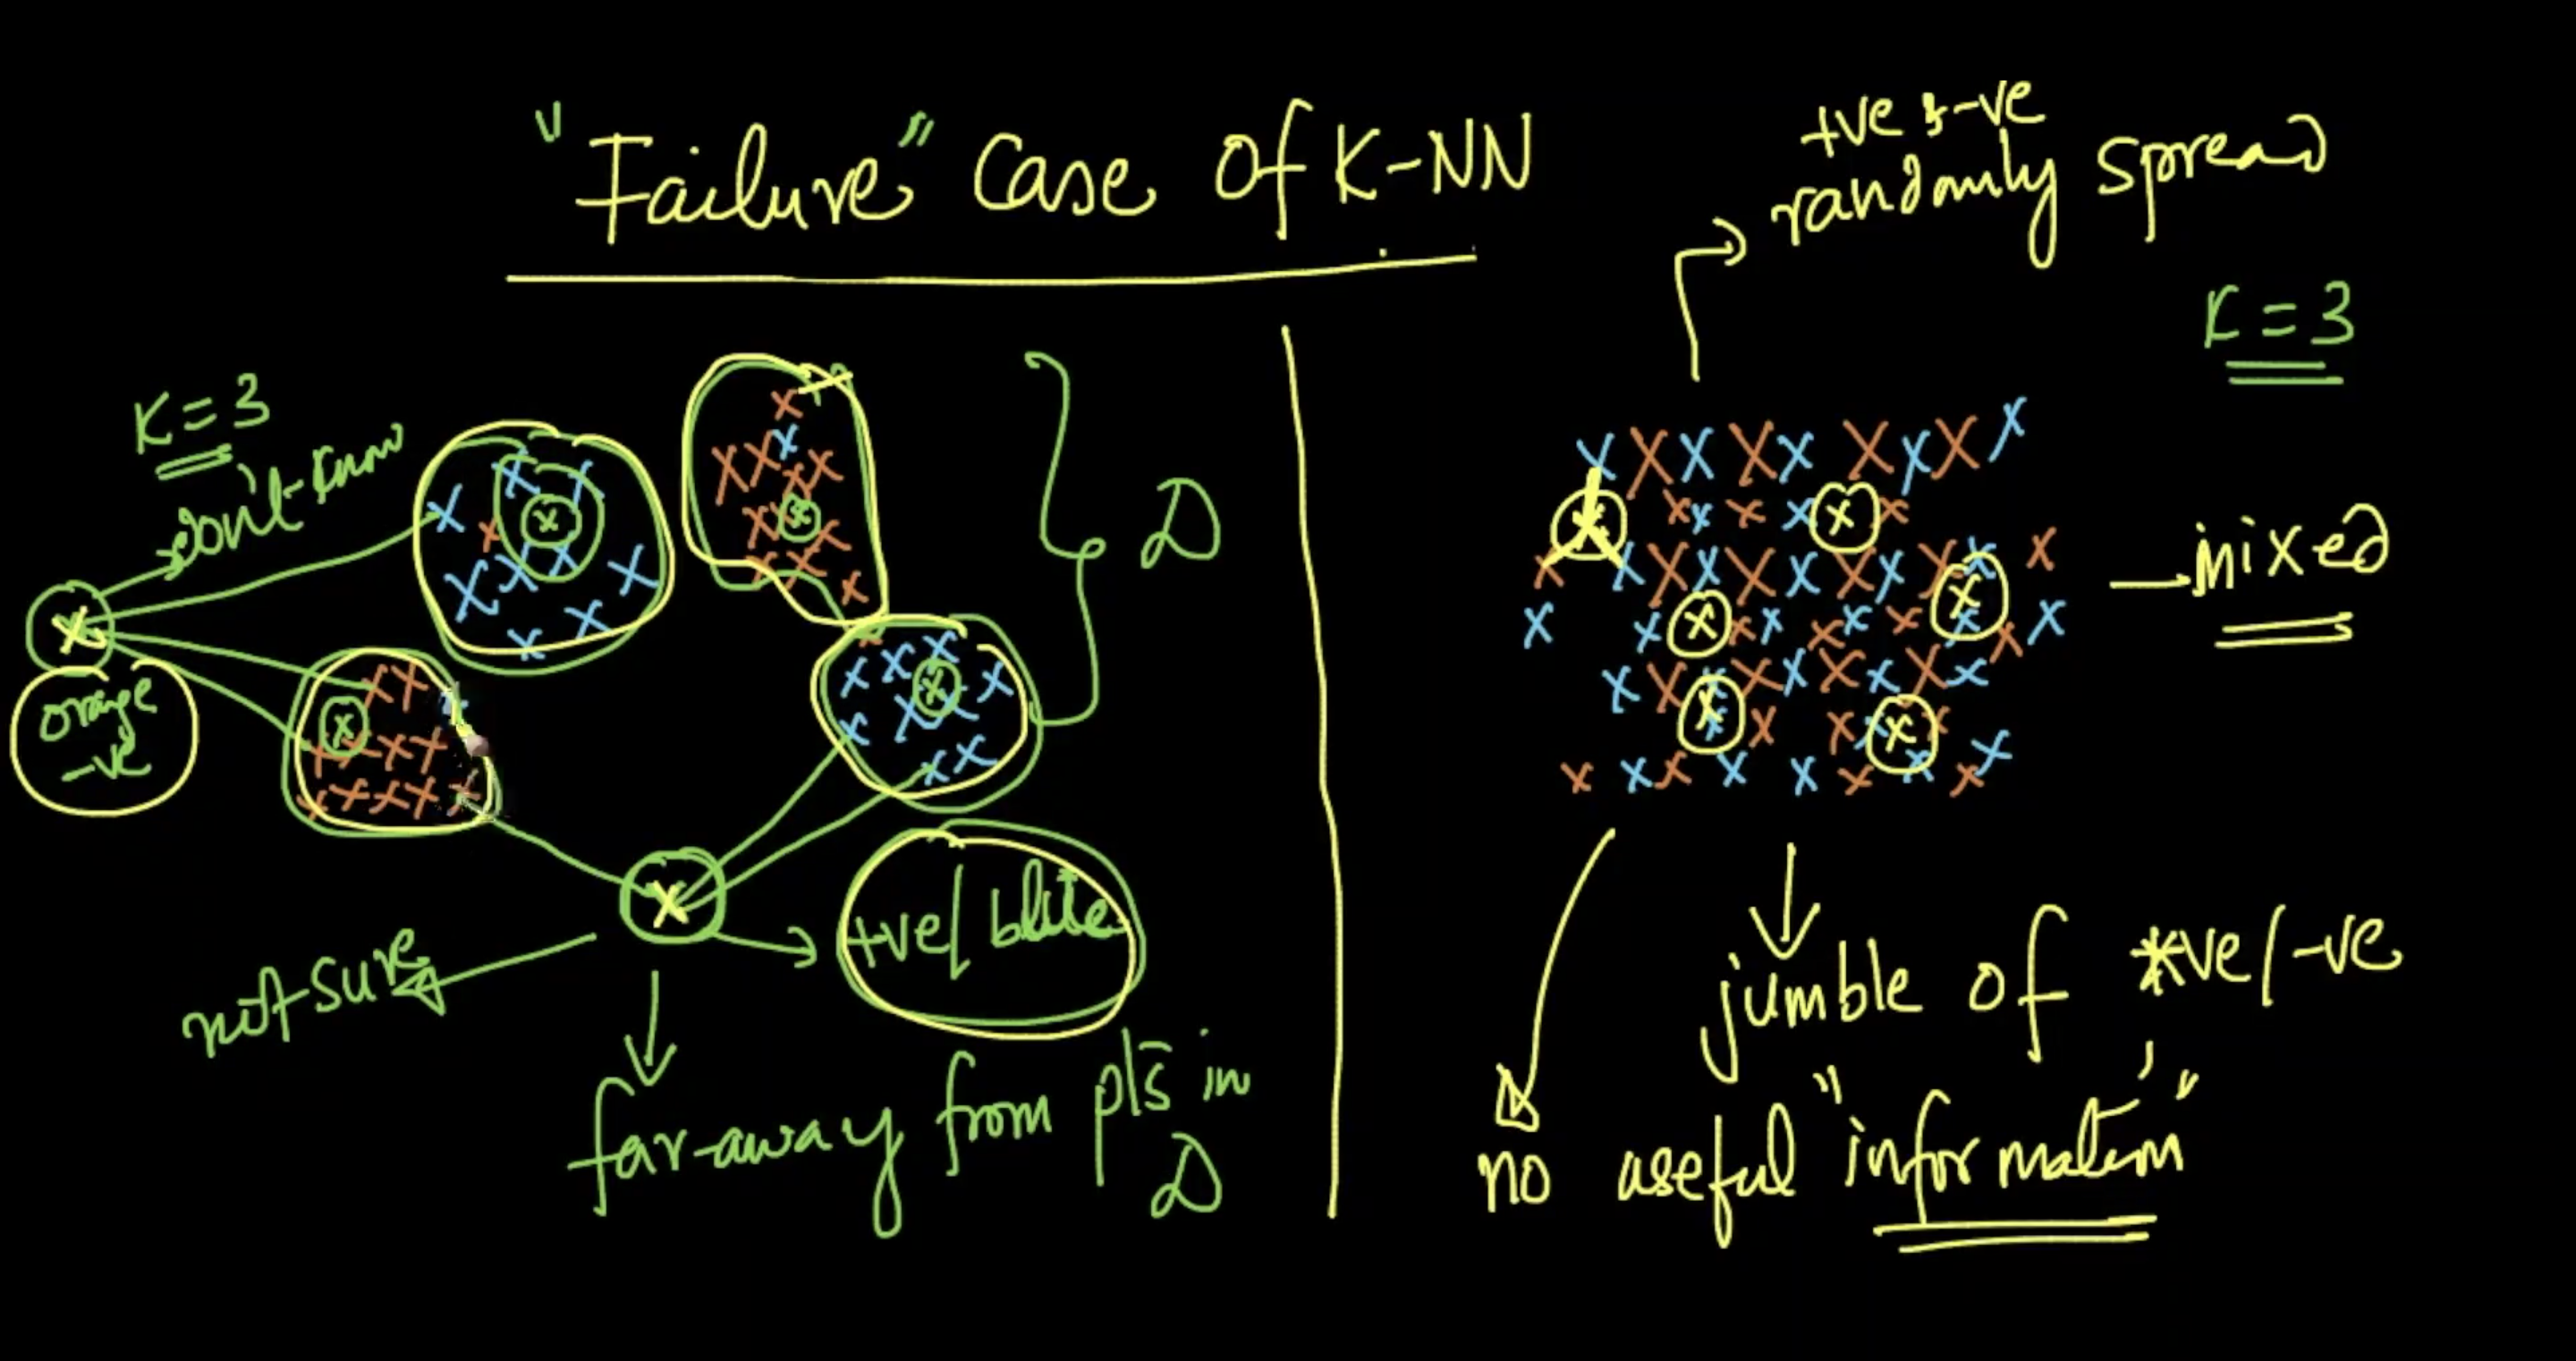 "Failure" Case Of K-NN
K=3
don't-know
orange
-ve
D
not-sure
+ve/ blue
far-away from pts in
D
+ve & -ve
randomly spread
K=3
mixed
jumble of +ve/-ve
no useful "information"